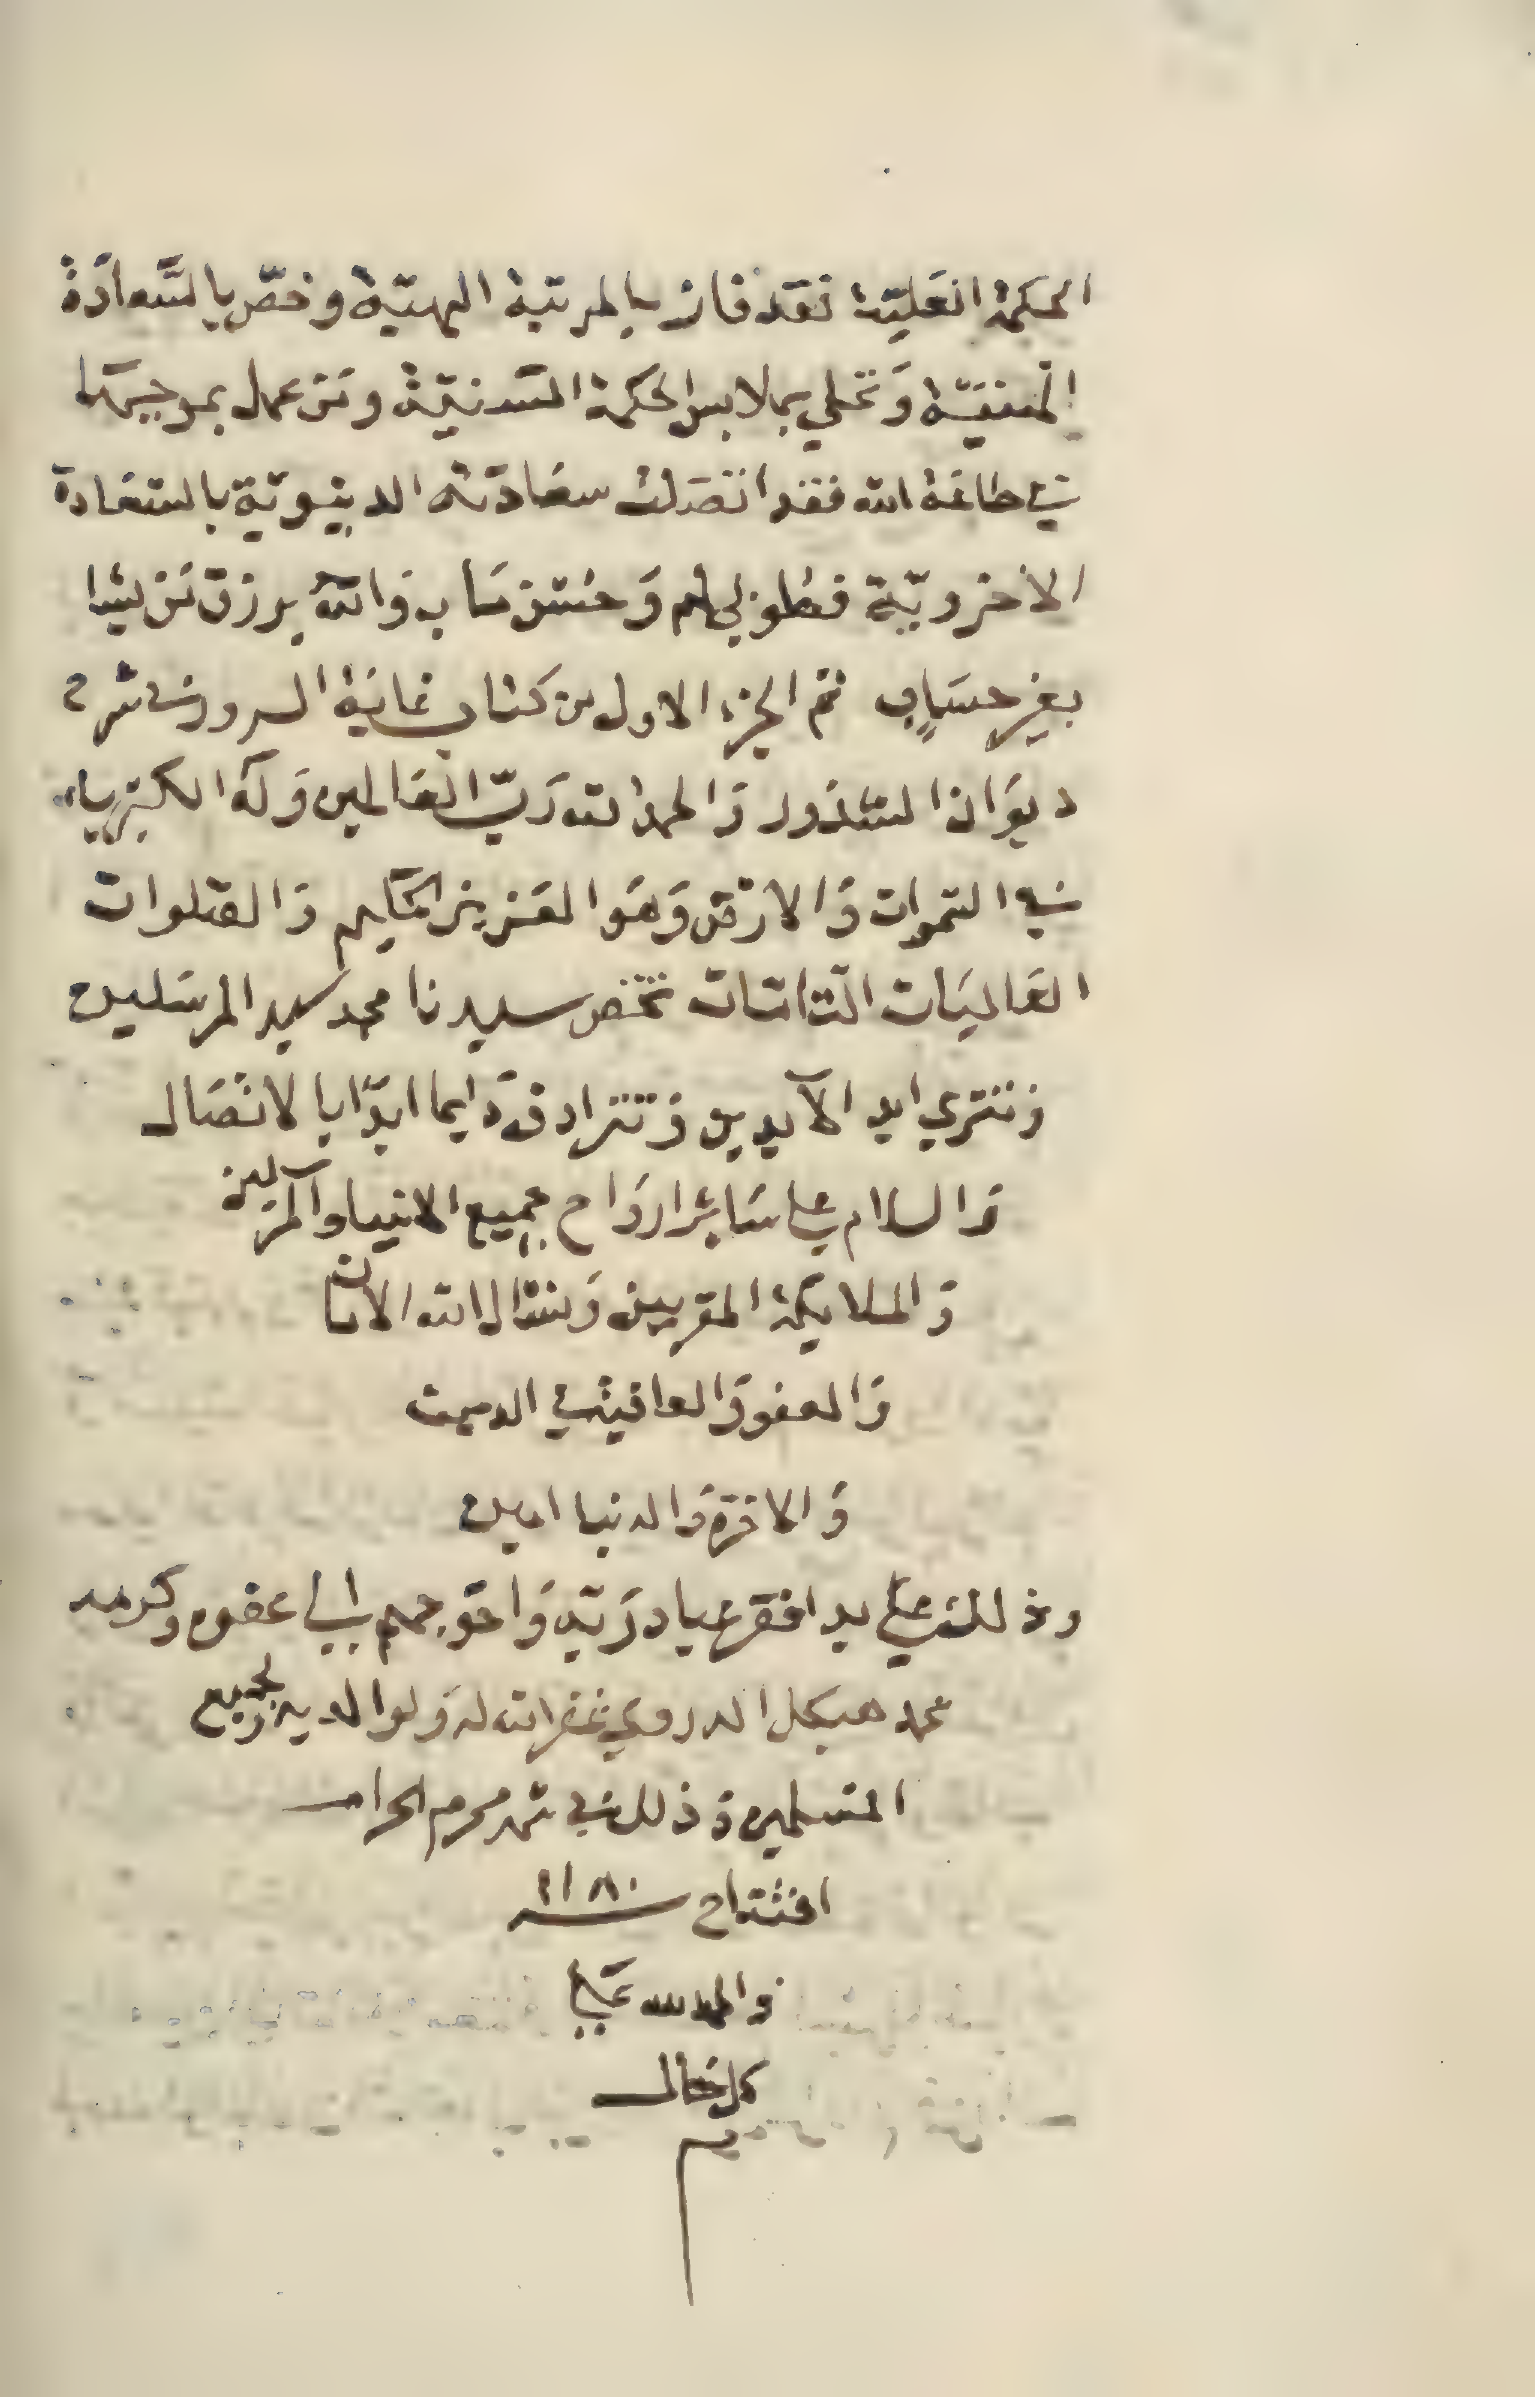 الحكمة العليّة فقد فاز بالمرتبة البهيّة وخصّ بالسَّعادَة
المضيّة وَتحلي بملابس الحكمة السّنيّة ومَن عمل بموجبها
في طاعة الله فقد اتصَلت سعَادَته الدنيويّة بالسّعَادة
الاخرويّة فطوبي لهم وَحسْن مَاب وَالله يرزق مَن يشا
بغير حسَابٍ تم الجزء الاول من كتاب غايَة السرور في شرح
ديوَان الشذور وَالحمد لله رَبّ العَالمين وَلَه الكبرياء
في السّموات وَالارْض وَهوَ العَزيز الحكيم وَالصّلوات
العَاليَات التّامّات تخص سيدنا محمد سيد المرسَلين
وَتتري ابد الآبدين وَتترادف دَايما ابدًا بالاتصَال
وَالسلام علي سَائر ارْوَاح جميع الانبيا والمرسلين
وَالملايكة المقربين وَنسْال الله الامان
وَالعفو وَالعافية في الدين
وَالاخرة وَالدنيا امين
وذلك علي يد افقر عباد رَبّه وَاحوجهم الي عفوه وكرمه
محمد هيكل الدروي غفر الله له وَلوالديه ولجميع
المسلمين وَذلك في شهر محرم الحرام
افتتاح سنة ١١٨٠
وَالحمد لله عَلي
كل حَال
م